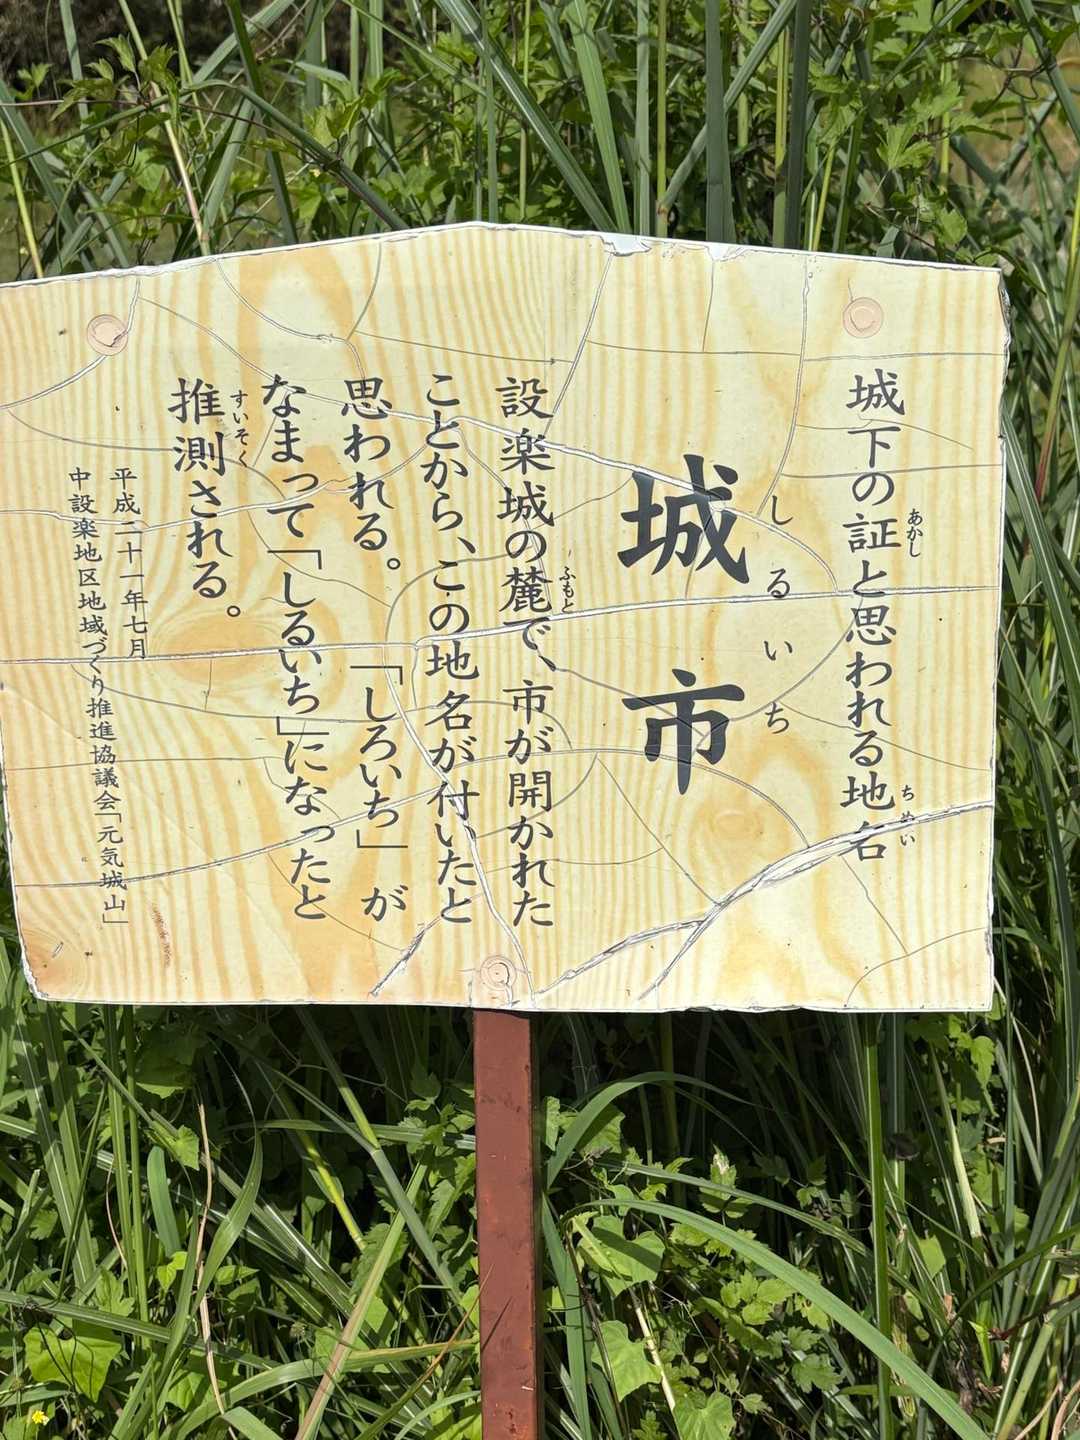 城下の証と思われる地名
あかし
ちめい
城市
しるいち
設楽城の麓で、市が開かれた
ふもと
ことから、この地名が付いたと
思われる。「しろいち」が
なまって「しるいち」になったと
推測される。
すいそく
平成二十一年七月
中設楽地区地域づくり推進協議会「元気城山」